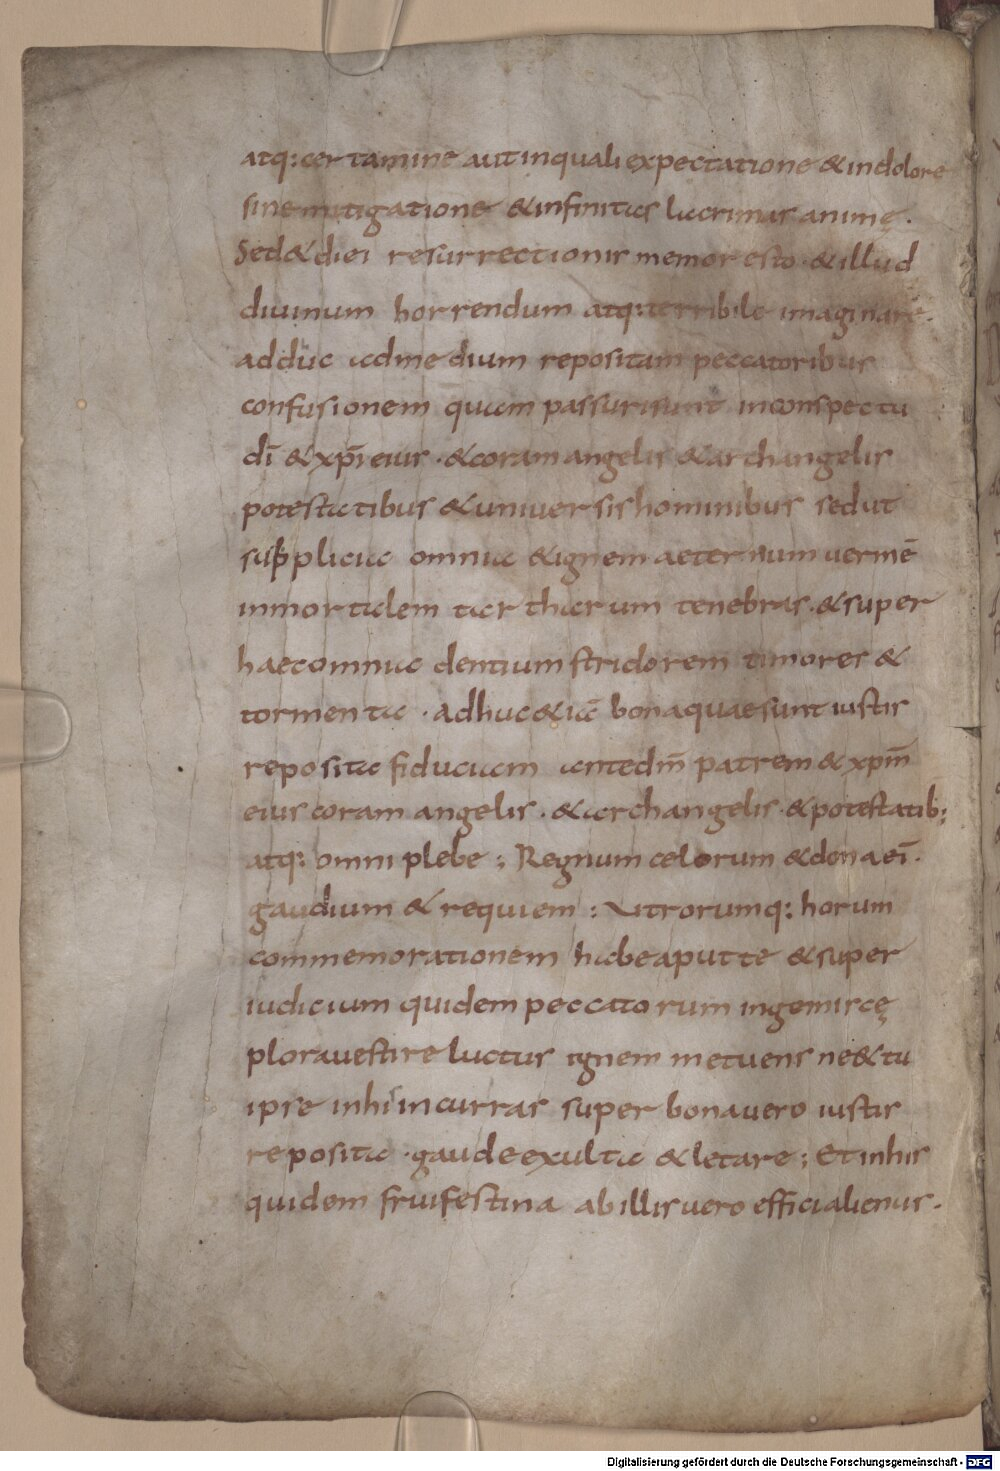 atq: certamine aut in quali expectatione & in dolore
sine mitigatione & infinitas lacrimas animę.
Sed & diei resurrectionis memor esto · & illud
diuinum horrendum atq: terribile imaginare.
adduc ad medium repositam peccatoribus
confusionem quam passuri sunt in conspectu
dī & xp̄i eius · & coram angelis & archangelis
potestatibus & uniuersis hominibus sed ut
supplicia omnia & ignem aeternum uermē
inmortalem tartharum tenebras · & super
haec omnia dentium stridorem timores &
tormenta · adhuc & iā bona quae sunt iustis
reposita fiduciam ante dm̄ patrem & xpm̄
eius coram angelis · & archangelis · & potestatib;
atq: omni plebe ; Regnum celorum & dona eī ·
gaudium & requiem : Vtrorumq: horum
commemorationem habe aput te & super
iudicium quidem peccatorum ingemiscę
plora uestire luctus ignem metuens ne & tu
ipse in hi incurras super bona uero iustis
reposita · gaude exulta & letare ; Et in his
quidem frui festina ab illis uero effici alienus ·
Digitalisierung gefördert durch die Deutsche Forschungsgemeinschaft - DFG